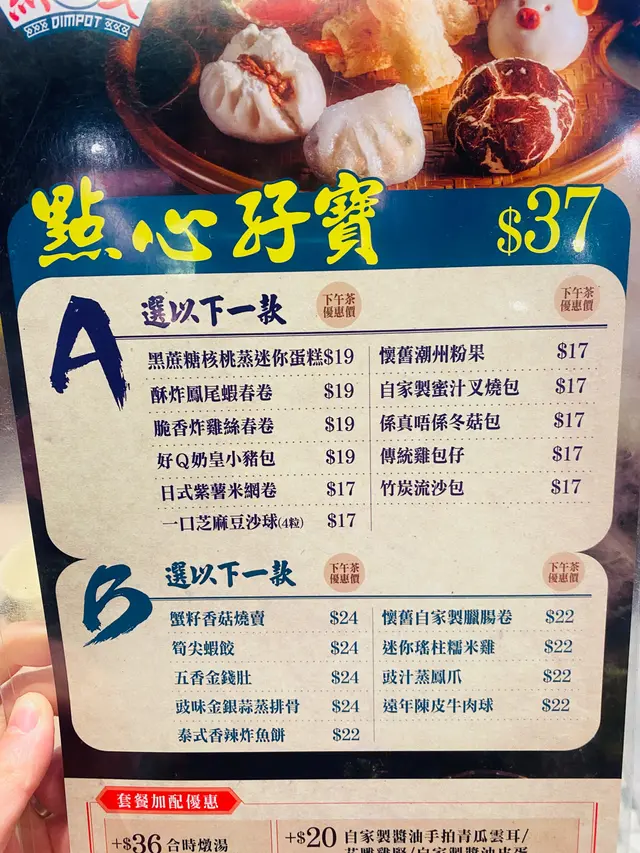 DIMPOT
點心孖寶 $37
A 選以下一款 下午茶優惠價 下午茶優惠價
黑蔗糖核桃蒸迷你蛋糕$19
酥炸鳳尾蝦春卷 $19
脆香炸雞絲春卷 $19
好Q奶皇小豬包 $19
日式紫薯米網卷 $17
一口芝麻豆沙球(4粒) $17
懷舊潮州粉果 $17
自家製蜜汁叉燒包 $17
係真唔係冬菇包 $17
傳統雞包仔 $17
竹炭流沙包 $17
B 選以下一款 下午茶優惠價 下午茶優惠價
蟹籽香菇燒賣 $24
筍尖蝦餃 $24
五香金錢肚 $24
豉味金銀蒜蒸排骨 $24
泰式香辣炸魚餅 $22
懷舊自家製臘腸卷 $22
迷你瑤柱糯米雞 $22
豉汁蒸鳳爪 $22
遠年陳皮牛肉球 $22
套餐加配優惠
+$36 合時燉湯
+$20 自家製醬油手拍青瓜雲耳/